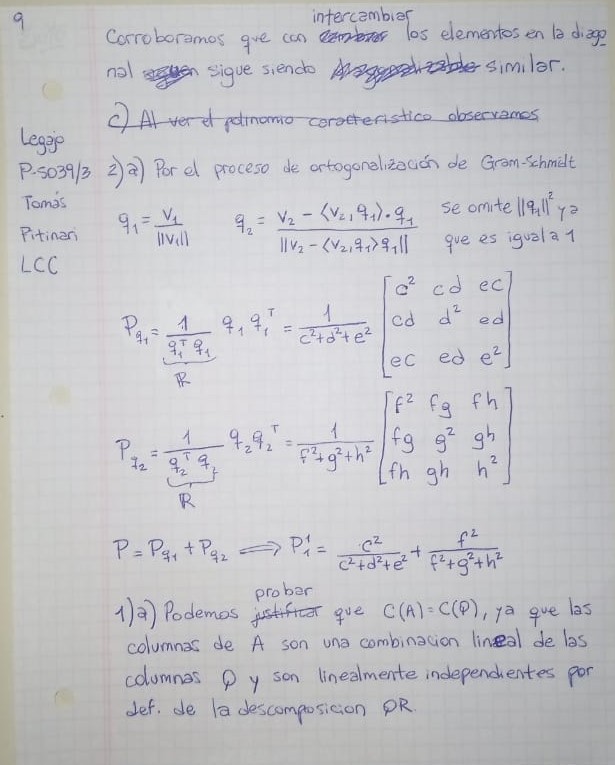 9
intercambiar
Corroboramos que con los elementos en la diago
nal sigue siendo similar.
c) Al ver el polinomio caracteristico observamos
Legajo
P-5039/3
Tomás
Pitinari
LCC
2)a) Por el proceso de ortogonalización de Gram-Schmidt
q₁ = v₁/||v₁|| q₂ = (v₂ - <v₂,q₁>.q₁)/||v₂ - <v₂,q₁>q₁|| se omite ||q₁||² ya
que es igual a 1
P_q₁ = 1/(q₁ᵀ q₁) q₁ q₁ᵀ = 1/(c²+d²+e²) [c² cd ec
cd d² ed
ec ed e²]
ℝ
P_q₂ = 1/(q₂ᵀ q₂) q₂ q₂ᵀ = 1/(f²+g²+h²) [f² fg fh
fg g² gh
fh gh h²]
ℝ
P = P_q₁ + P_q₂ ⟹ P₁¹ = c²/(c²+d²+e²) + f²/(f²+g²+h²)
probar
1)a) Podemos justificar que C(A)=C(Q), ya que las
columnas de A son una combinacion lineal de las
columnas Q y son linealmente independientes por
def. de la descomposicion QR.